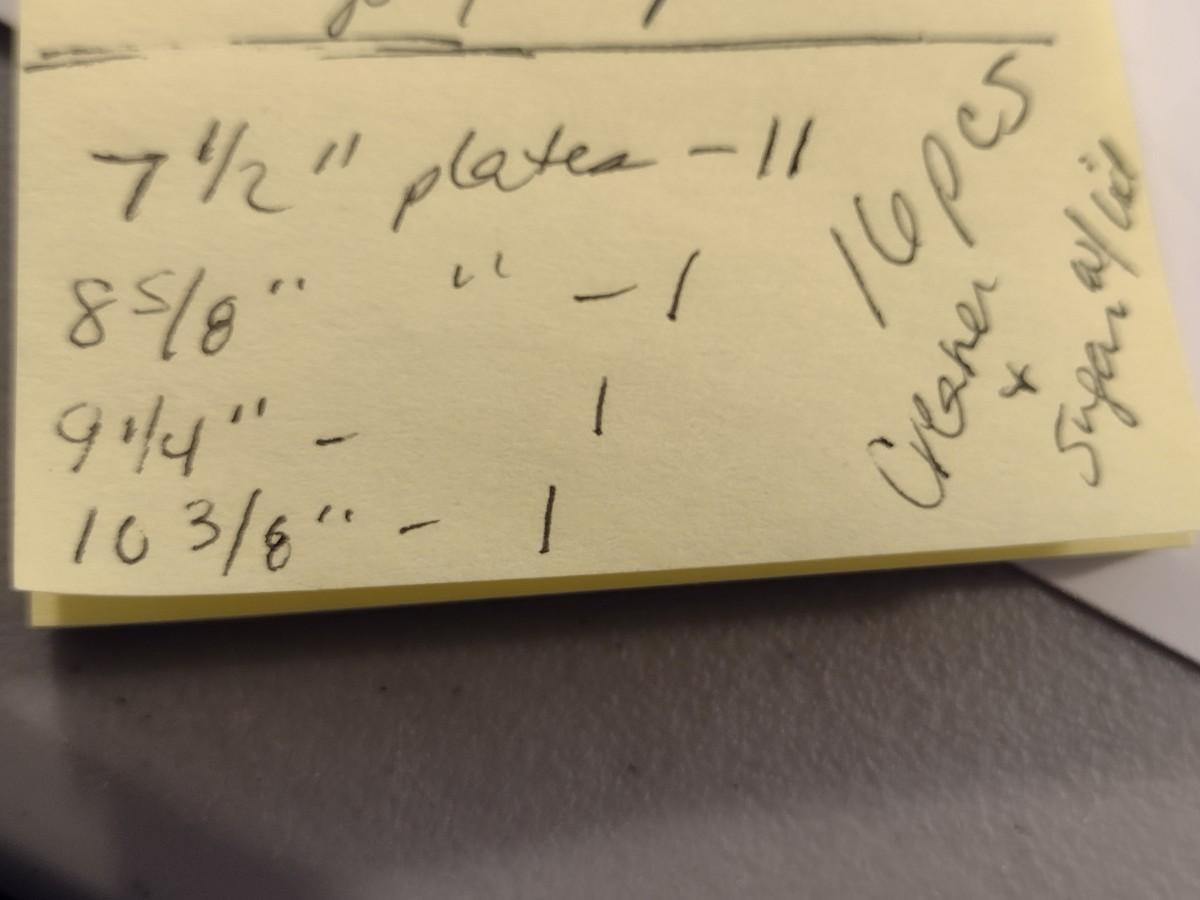 7 1/2 " plates - 11
8 5/8 " " - 1
9 1/4 " - 1
10 3/8 " - 1
16 pcs
Creamer
+
Sugar w/ lid